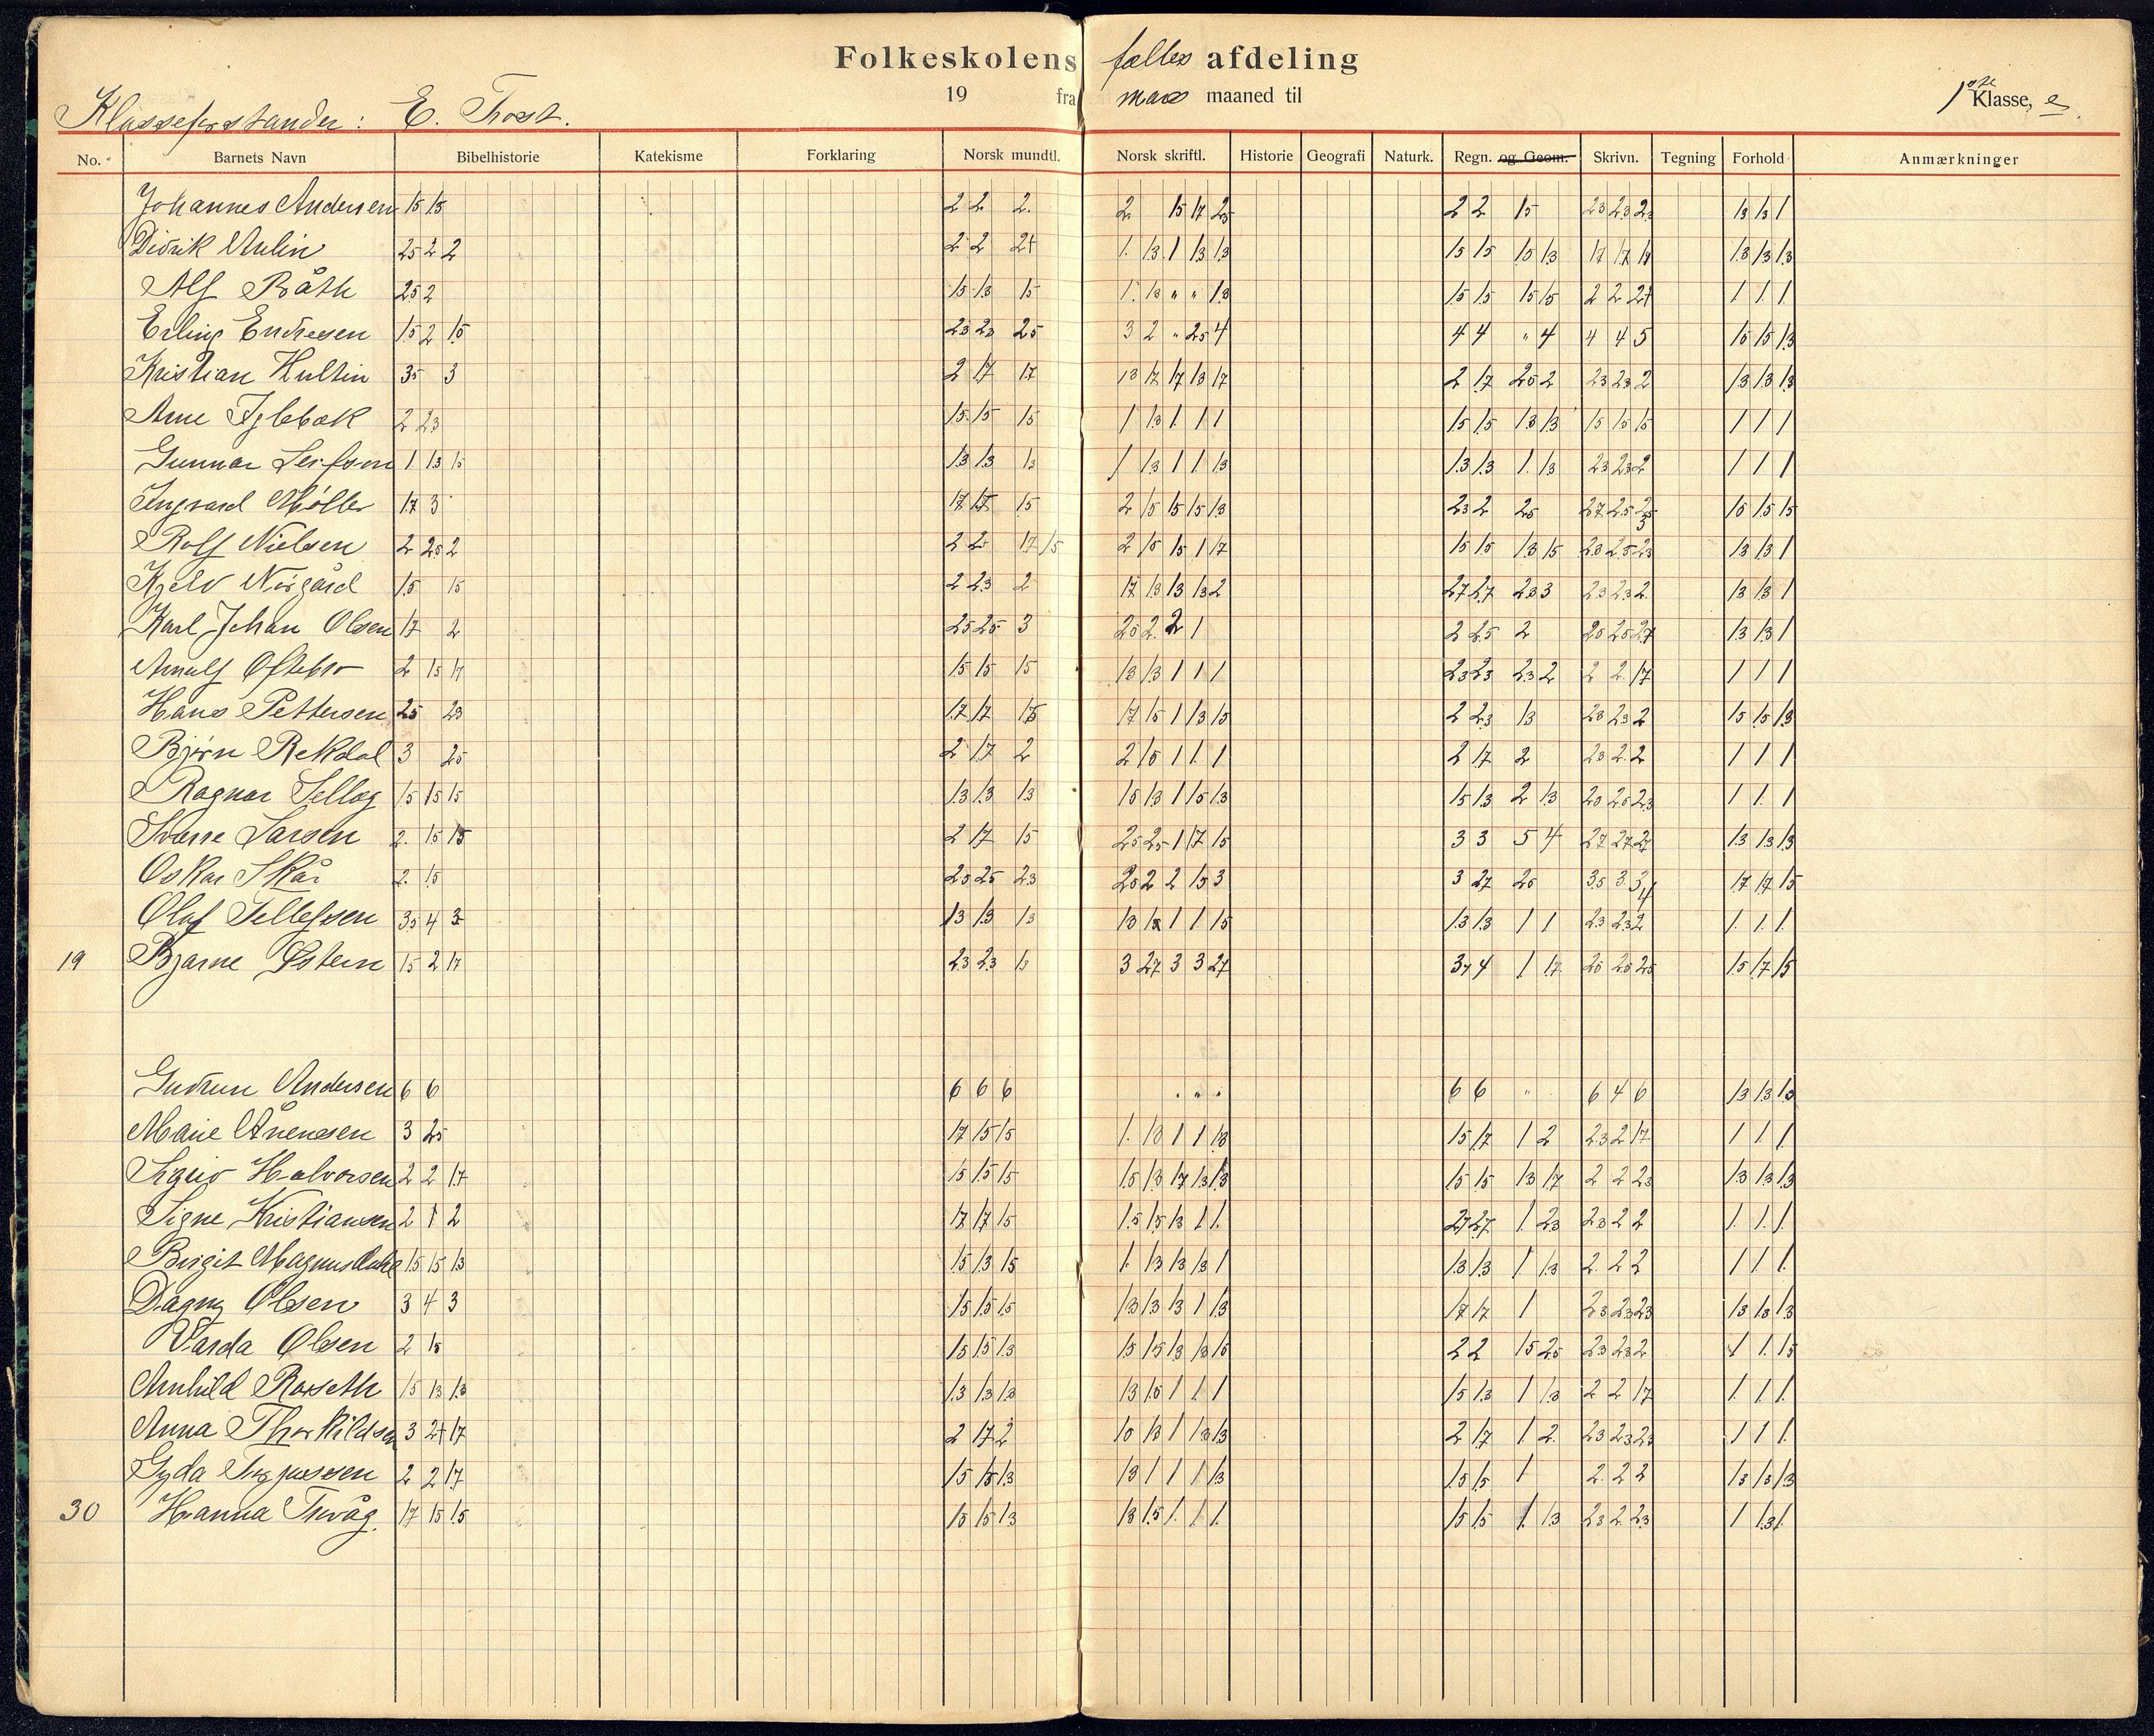 Folkeskolens fælles afdeling
19 fra mars maaned til
1ste Klasse, e.
Klasseforstander: E. Trost.
No. Barnets Navn Bibelhistorie Katekisme Forklaring Norsk mundtl. Norsk skriftl. Historie Geografi Naturk. Regn. og Geom. Skrivn. Tegning Forhold Anmærkninger
Johannes Andersen 15 15 2 2 2. 2 15 17 25 2 2 15 23 23 23 13 13 1
Didrik Aulin 25 2 2 2 2 2+ 1. 13 1 13 13 15 15 15 13 17 17 17 13 13 13
Alf Bååth 25 2 15 13 15 1. 13 " " 13 15 15 15 15 2 2 2+ 1 1 1
Erling Endresen 15 2 15 23 23 25 3 2 " 25 4 4 4 " 4 4 4 5 15 15 13
Kristian Hultin 35 3 2 17 17 13 17 17 13 17 2 17 25 2 23 23 2 13 13 13
Arne Iglebæk 2 23 15 15 15 1 13 1 1 1 15 15 13 13 15 15 15 1 1 1
Gunnar 1 13 15 13 13 13 1 13 1 1 13 13 13 1. 13 23 23 2 1 1 1
Ingvard Møller 17 3 17 17 15 2 15 15 15 13 23 2 25 27 25 25 15 15 15
Rolf Nielsen 2 25 2 2 2+ 17 15 2 15 15 1 17 15 15 13 15 23 25 23 13 13 1
Kjell Norgård 15 15 2 23 2 17 13 13 13 2 27 27 23 3 23 23 2 13 13 1
Karl Johan Olsen 17 2 25 25 3 25 2. 2 1 2 25 2 25 25 27 13 13 1
Arnulf Oftebro 2 15 17 15 15 15 13 13 1 1 1 23 23 23 2 2 2. 17 1 1 1
Hans Pettersen 25 23 17 17 15 17 15 1 13 15 2 23 13 23 23 2 15 15 13
Bjørn Rekdal 3 25 2 17 2 2 15 1 1 1 2 17 2 23 2 2 1 1 1
Ragnar Selleg 15 15 15 13 13 13 15 13 1 15 13 15 13 2 13 25 25 23 1 1 1
Sverre Larsen 2. 15 15 2 17 15 25 25 1 17 15 3 3 5 4 27 27 27 13 13 13
Oskar Skår 2. 15 25 25 23 25 2 2 15 3 3 27 25 35 3 34 17 17 15
Olaf Tellefsen 35 4 3 13 13 13 13 1 1 15 13 13 1 1 23 23 2 1. 1. 1.
19 Bjarne Østern 15 2 17 23 23 13 3 27 3 3 27 37 4 1 17 25 25 25 15 17 15
Gudrun Andersen 6 6 6 6 6 " " " 6 6 " 6 4 6 13 13 13
Marie Ånensen 3 25 17 15 15 1. 13 1 1 13 15 17 1 2 23 2 17 1 1 1
Halvorsen 2 2 17 15 15 15 15 13 17 13 13 15 15 13 17 2 2 23 13 13 13
Signe Kristiansen 2 1 2 17 17 15 15 15 13 1 1. 27 27 1 23 23 2 2 1. 1. 1
Birgit Magnusdahl 15 15 13 15 13 15 1. 13 13 13 1 13 13 1 13 2. 2 2 1 1 1
Dagny Olsen 3 4 3 15 15 15 13 13 13 1 13 17 17 1 23 23 23 13 13 13
Varda Olsen 2 15 15 15 13 15 15 13 13 15 2 2 15 25 23 23 2 1 1. 15
Arnhild Rosseth 15 13 13 13 13 13 13 15 1 1 1 15 13 1 13 2 2 17 1. 1. 1.
Anna Thorkildsen 3 2+ 17 2 17 2 15 13 1 13 13 2 17 1 2. 23 23 23 1 1 1
Gyda Torjussen 2 2 17 15 15 13 13 1 1 1 13 15 15 1 2. 2 2 13 13 13
30 Hanna Tveåg. 17 15 15 15 15 13 13 15 1. 1 1. 15 15 1 13 23 2 23 1 13 1.